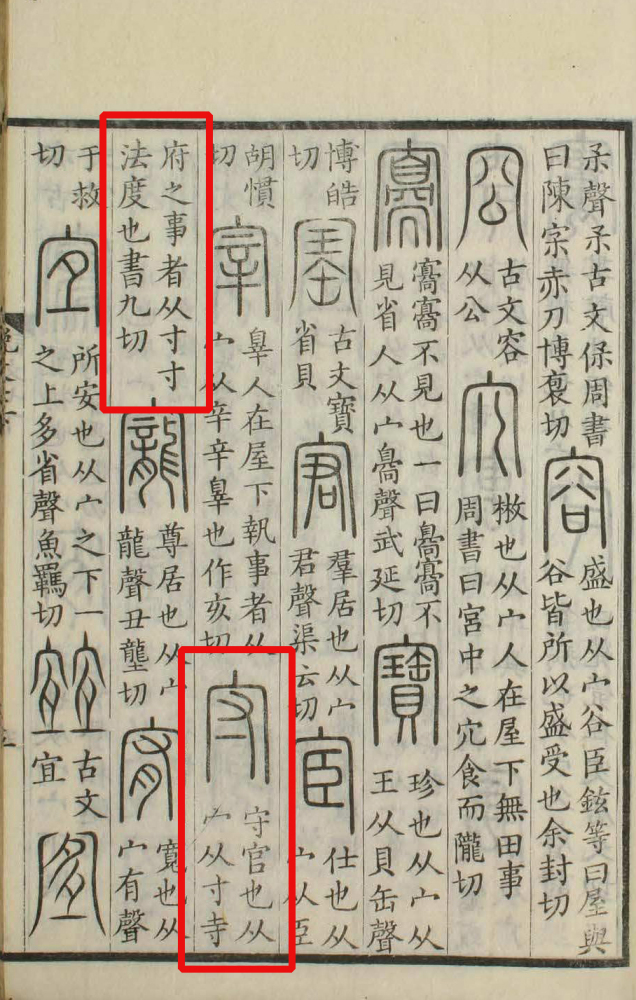 𣎼聲𣎼古文保周書
曰陳宲赤刀博褒切
容
盛也从宀谷臣鉉等曰屋與
谷皆所以盛受也余封切
㝐
古文容
从公
宂
㪔也从宀人在屋下無田事
周書曰宮中之宂食而隴切
㝰
㝰㝰不見也一曰㝰㝰不
見省人从宀𦤝聲武延切
寶
珍也从宀从
王从貝缶聲
博皓
切
古文寶
省貝
宭
羣居也从宀
君聲渠云切
宦
仕也从
宀从臣
胡慣
切
宰
辠人在屋下執事者从
宀从辛辛辠也作亥切
守
守官也从
宀从寸寺
府之事者从寸寸
法度也書九切
寵
尊居也从宀
龍聲丑壟切
宥
寬也从
宀有聲
于救
切
宜
所安也从宀之下一
之上多省聲魚羈切
古文
宜